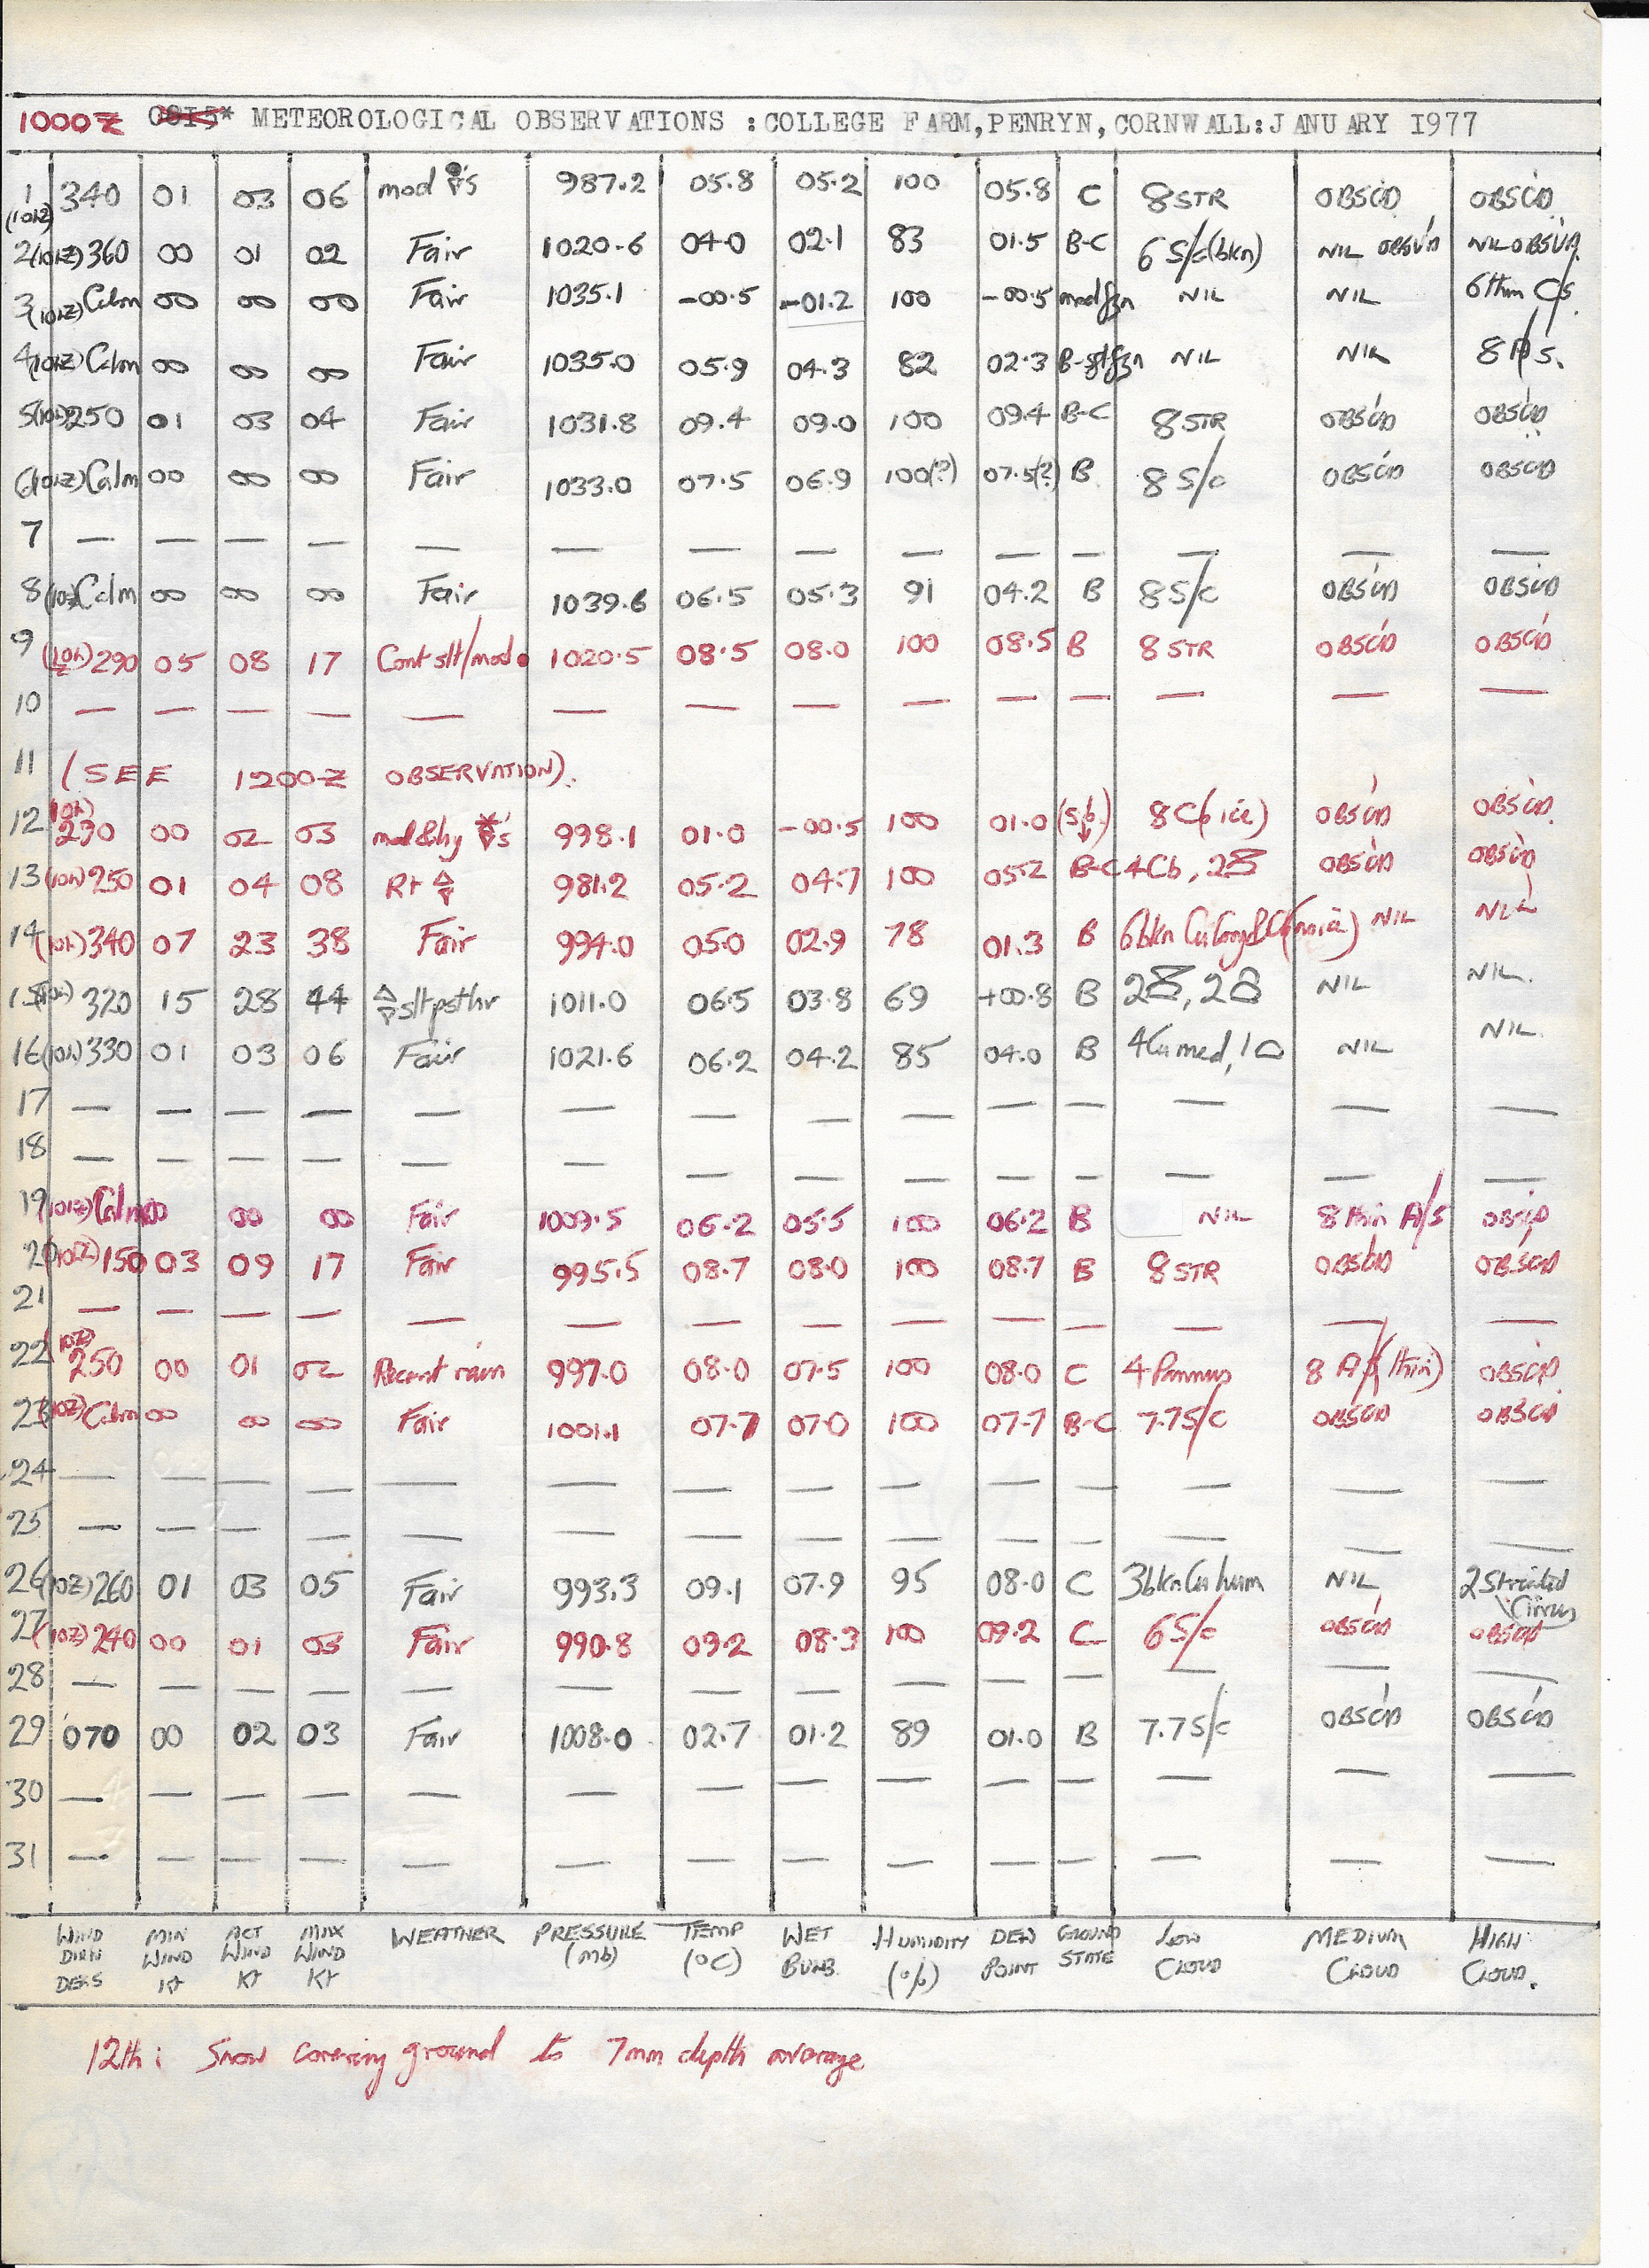 1000Z 0815* METEOROLOGICAL OBSERVATIONS :COLLEGE FARM,PENRYN,CORNWALL:JANUARY 1977
1 (10hZ) 340 01 03 06 mod 's 987.2 05.8 05.2 100 05.8 C 8 STR OBSC'D OBSC'D
2 (10hZ) 360 00 01 02 Fair 1020.6 04.0 02.1 83 01.5 B-C 6 S/c (bkn) NIL OBSV'D NIL OBSV'D.
3 (10hZ) Calm 00 00 00 Fair 1035.1 -00.5 -01.2 100 -00.5 mod fzn NIL NIL 6 thin C/s.
4 (10hZ) Calm 00 00 00 Fair 1035.0 05.9 04.3 82 02.3 B-slt fzn NIL NIL 8 A/s.
5 (10h) 250 01 03 04 Fair 1031.8 09.4 09.0 100 09.4 B-C 8 STR OBSC'D OBSC'D
6 (10hZ) Calm 00 00 00 Fair 1033.0 07.5 06.9 100(?) 07.5(?) B 8 S/c OBSC'D OBSC'D
7 — — — — — — — — — — — — — —
8 (10z) Calm 00 00 00 Fair 1039.6 06.5 05.3 91 04.2 B 8 S/c OBSC'D OBSC'D
9 (10h Z) 290 05 08 17 Cont slt/mod • 1020.5 08.5 08.0 100 08.5 B 8 STR OBSC'D OBSC'D
10 — — — — — — — — — — — — — —
11 (SEE 1200Z OBSERVATION).
12 (10h) 290 00 02 03 mod & hy 's 998.1 01.0 -00.5 100 01.0 (S/b.) 8 Cb (ice) OBSC'D OBSC'D.
13 (10h) 250 01 04 08 R+ 981.2 05.2 04.7 100 05.2 B-C 4 Cb, 2 OBSC'D OBSC'D
14 (10h) 340 07 23 38 Fair 994.0 05.0 02.9 78 01.3 B 6 bkn Cu Cong & Cb (no ice) NIL NIL
15 (10h) 320 15 28 44 slt pst hr 1011.0 06.5 03.8 69 +00.8 B 2, 2 NIL NIL.
16 (10h) 330 01 03 06 Fair 1021.6 06.2 04.2 85 04.0 B 4 Cu med, 1 NIL NIL.
17 — — — — — — — — — — — — — —
18 — — — — — — — — — — — — — —
19 (10hZ) Calm 00 00 00 Fair 1009.5 06.2 05.5 100 06.2 B NIL 8 thin A/s OBSC'D
20 (10Z) 150 03 09 17 Fair 995.5 08.7 08.0 100 08.7 B 8 STR OBSC'D OBSC'D
21 — — — — — — — — — — — — — —
22 (10Z) 250 00 01 02 Recent rain 997.0 08.0 07.5 100 08.0 C 4 Pannus 8 A/s (thin) OBSC'D
23 (10Z) Calm 00 00 00 Fair 1001.1 07.7 07.0 100 07.7 B-C 7.7 S/c OBSC'D OBSC'D
24 — — — — — — — — — — — — — —
25 — — — — — — — — — — — — — —
26 (10Z) 260 01 03 05 Fair 993.3 09.1 07.9 95 08.0 C 3 bkn Cu hum NIL 2 Striated Cirrus
27 (10Z) 240 00 01 03 Fair 990.8 09.2 08.3 100 09.2 C 6 S/c OBSC'D OBSC'D
28 — — — — — — — — — — — — — —
29 070 00 02 03 Fair 1008.0 02.7 01.2 89 01.0 B 7.7 S/c OBSC'D OBSC'D
30 — — — — — — — — — — — — — —
31 — — — — — — — — — — — — — —
WIND DIRN DEGS MIN WIND Kt ACT WIND Kt MAX WIND Kt WEATHER PRESSURE (mb) TEMP (°C) WET BULB. HUMIDITY (%) DEW POINT GROUND STATE LOW CLOUD MEDIUM CLOUD HIGH CLOUD.
12th: Snow covering ground to 7mm depth average